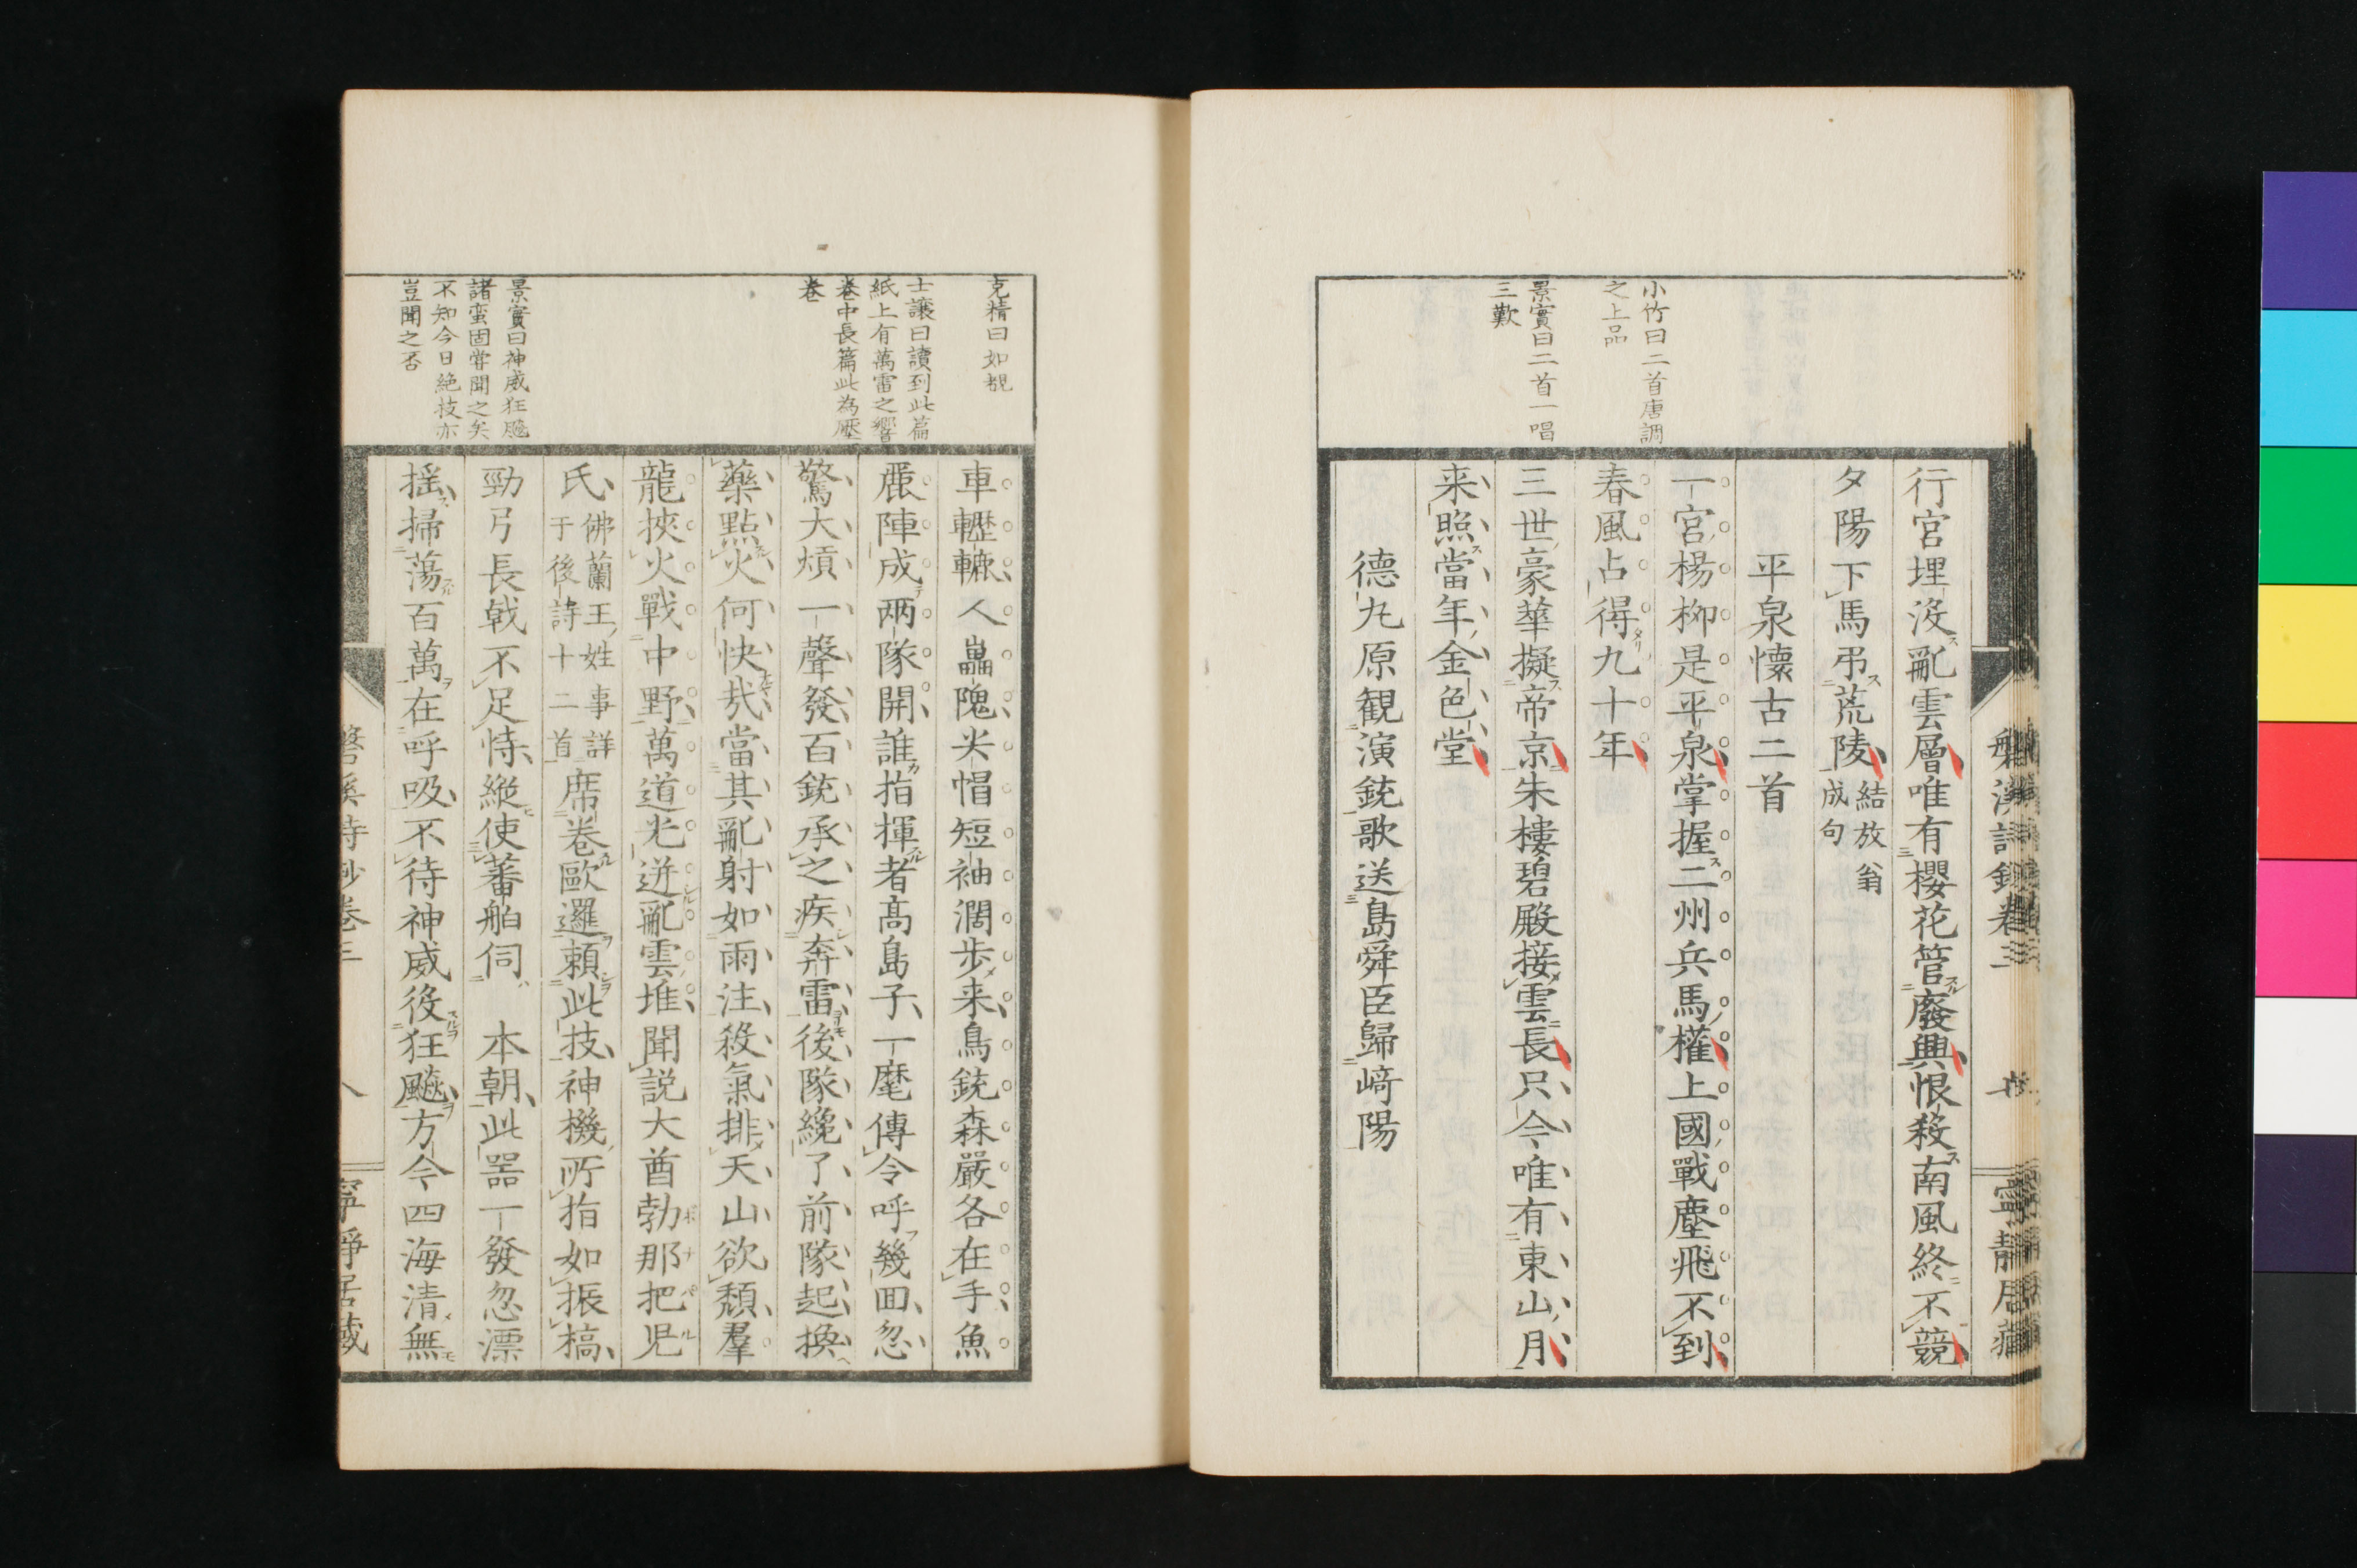 行宮埋沒亂雲層唯有櫻花管廢興恨殺南風終不競
夕陽下馬弔荒陵結放翁成句
平泉懷古二首
一宮楊柳是平泉掌握二州兵馬權上國戰塵飛不到
春風占得九十年
三世豪華擬帝京朱樓碧殿接雲長只今唯有東山月
来照當年金色堂
德丸原観演銃歌送島舜臣歸﨑陽
小竹曰二首唐調
之上品
景實曰二首一唱
三歎
車轣轆人礨隗尖帽短袖濶歩来鳥銃森嚴各在手魚
麗陣成两隊開誰指揮者高島子一麾傳令呼幾回忽
驚大熕一聲發百銃承之疾奔雷後隊纔了前隊起換
藥點火何快哉當其亂射如雨注殺氣排天山欲頽羣
龍挾火戰中野萬道光迸亂雲堆聞説大酋勃那把児
氏佛蘭王姓事詳于後詩十二首席卷歐邏頼此技神機所指如振槁
勁弓長戟不足恃縱使蕃舶伺 本朝此器一發忽漂
揺掃蕩百萬在呼吸不待神威役狂飈方今四海清無
克精曰如覩
士讓曰讀到此篇
紙上有萬雷之響
卷中長篇此為壓
卷
景實曰神威狂飈
諸蛮固甞聞之矣
不知今日絶技亦
豈聞之否
磐溪詩鈔卷三
八
寧静居藏